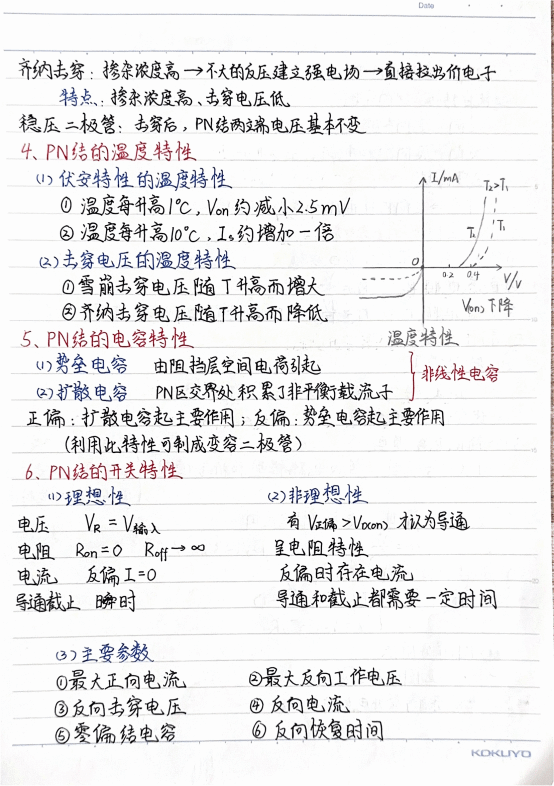 Date
齐纳击穿：掺杂浓度高→不大的反压建立强电场→直接拉出价电子
特点：掺杂浓度高、击穿电压低
稳压二极管：击穿后，PN结两端电压基本不变
4、PN结的温度特性
(1) 伏安特性的温度特性
① 温度每升高1℃，Von 约减小2.5mV
② 温度每升高10℃，Is约增加一倍
(2) 击穿电压的温度特性
① 雪崩击穿电压随T升高而增大
② 齐纳击穿电压随T升高而降低
I/mA
T₂>T₁
T₂
T₁
0
0.2
0.4
V/V
V(on) 下降
温度特性
5、PN结的电容特性
(1) 势垒电容 由阻挡层空间电荷引起
(2) 扩散电容 PN区交界处积累了非平衡载流子
非线性电容
正偏：扩散电容起主要作用；反偏：势垒电容起主要作用
(利用此特性可制成变容二极管)
6、PN结的开关特性
(1) 理想性 (2) 非理想性
电压 VR = V输入 有 V正偏 > VD(on) 才认为导通
电阻 Ron=0 Roff→∞ 呈电阻特性
电流 反偏 I=0 反偏时存在电流
导通截止 瞬时 导通和截止都需要一定时间
(3) 主要参数
①最大正向电流 ②最大反向工作电压
③反向击穿电压 ④反向电流
⑤零偏结电容 ⑥反向恢复时间
KOKUYO